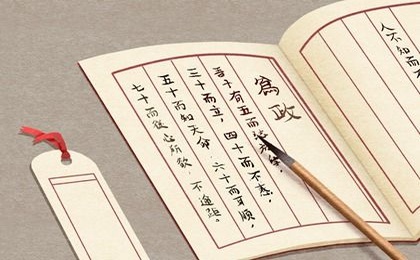 為政
吾十有五而志於學,
三十而立,四十而不惑,
五十而知天命,六十而耳順,
七十而從心所欲,不逾矩。
人不知而